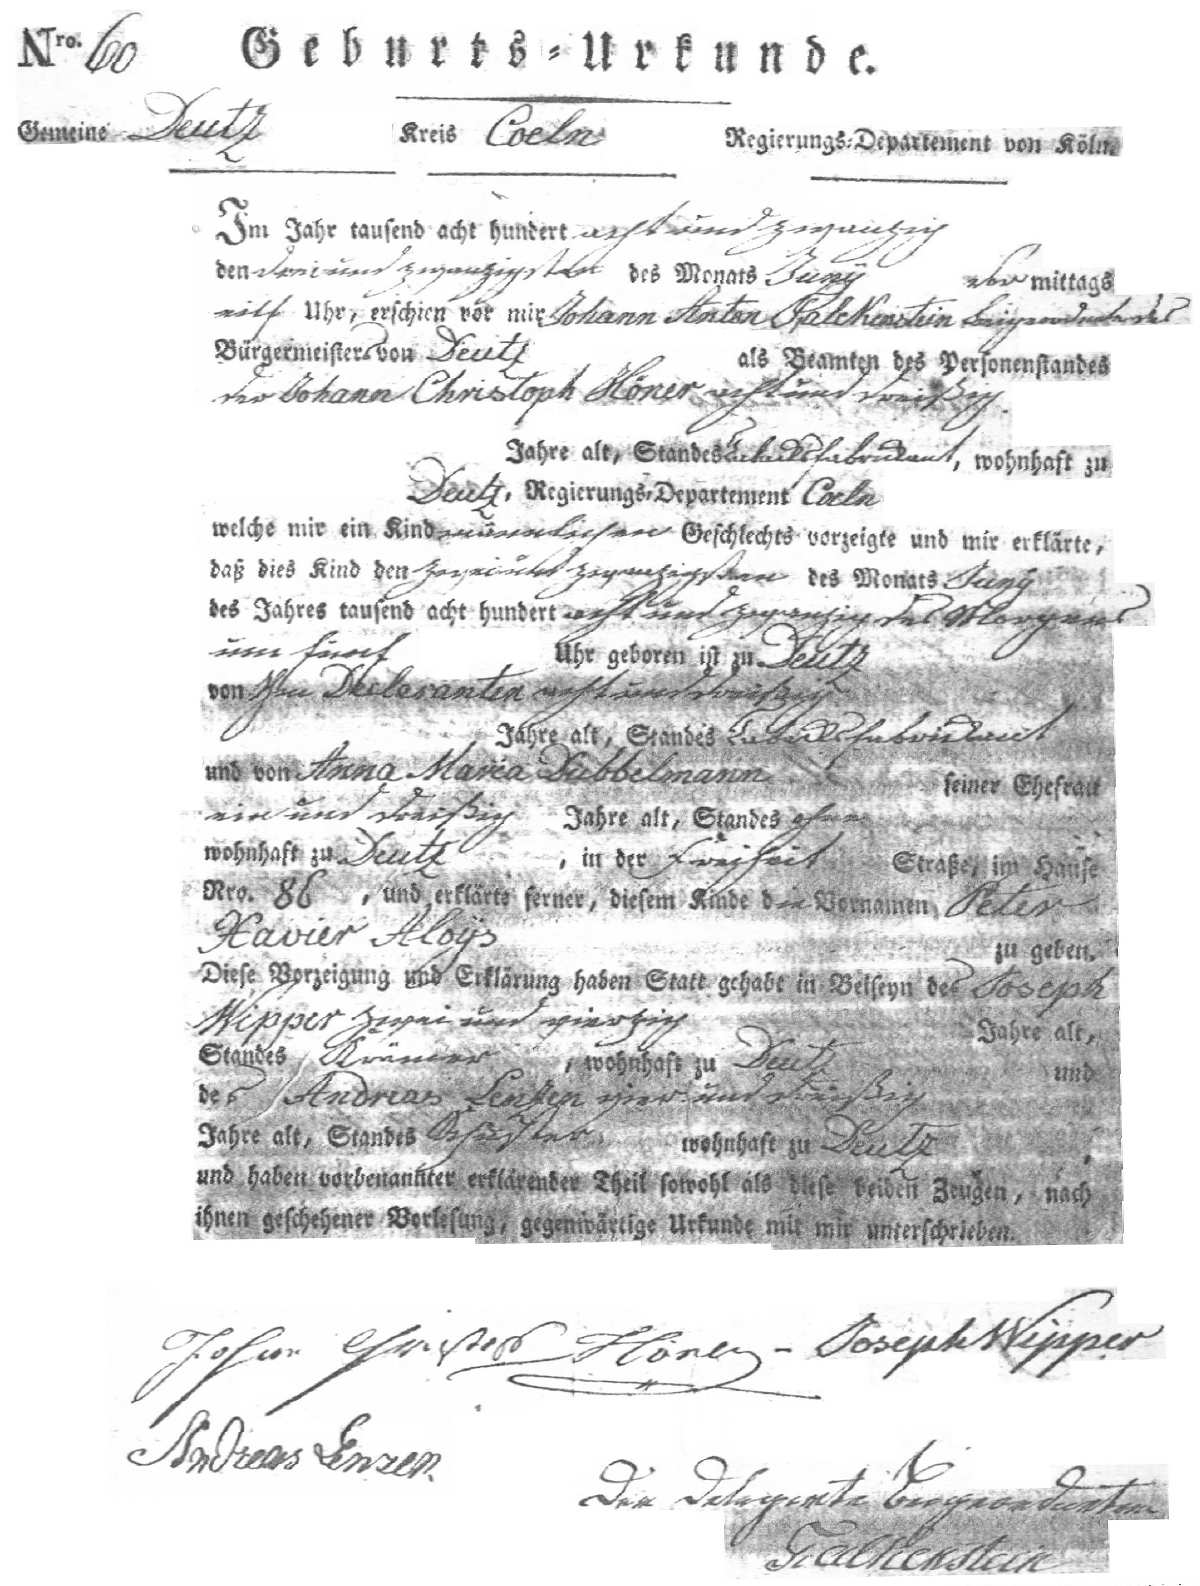 Nro. 60 Geburts-Urkunde.
Gemeine Deutz Kreis Coeln Regierungs-Departement von Köln
Im Jahr tausend acht hundert acht und zwanzig
den drei und zwanzigsten des Monats Juny vor mittags
eilf Uhr, erschien vor mir Johann Anton Falckenstein Beigeordnete des
Bürgermeisters von Deutz als Beamten des Personenstandes
der Johann Christoph Höner acht und dreißig
Jahre alt, Standes Tabacksfabrickant, wohnhaft zu
Deutz, Regierungs-Departement Coeln
welche mir ein Kind männlichen Geschlechts vorzeigte und mir erklärte,
daß dies Kind den zwei und zwanzigsten des Monats Juny
des Jahres tausend acht hundert acht und zwanzig des Morgens
um fünf Uhr geboren ist zu Deutz
von ihm Declaranten acht und dreißig
Jahre alt, Standes Tabacksfabrickant
und von Anna Maria Dubbelmann seiner Ehefrau
ein und dreißig Jahre alt, Standes ohne
wohnhaft zu Deutz, in der Freiheit Straße, im Hause
Nro. 86, und erklärte ferner, diesem Kinde die Vornamen Peter
Xavier Aloys zu geben.
Diese Vorzeigung und Erklärung haben Statt gehabt in Beiseyn des Joseph
Wipper zwei und vierzig Jahre alt,
Standes Krämer, wohnhaft zu Deutz und
des Andreas Lenzen vier und dreißig
Jahre alt, Standes Schuster wohnhaft zu Deutz
und haben vorbenannter erklärender Theil sowohl als diese beiden Zeugen, nach
ihnen geschehener Vorlesung, gegenwärtige Urkunde mit mir unterschrieben.
Johann Christoph Höner - Joseph Wipper
Andreas Lenzen
Der delegirte Beigeordnete
Falckenstein